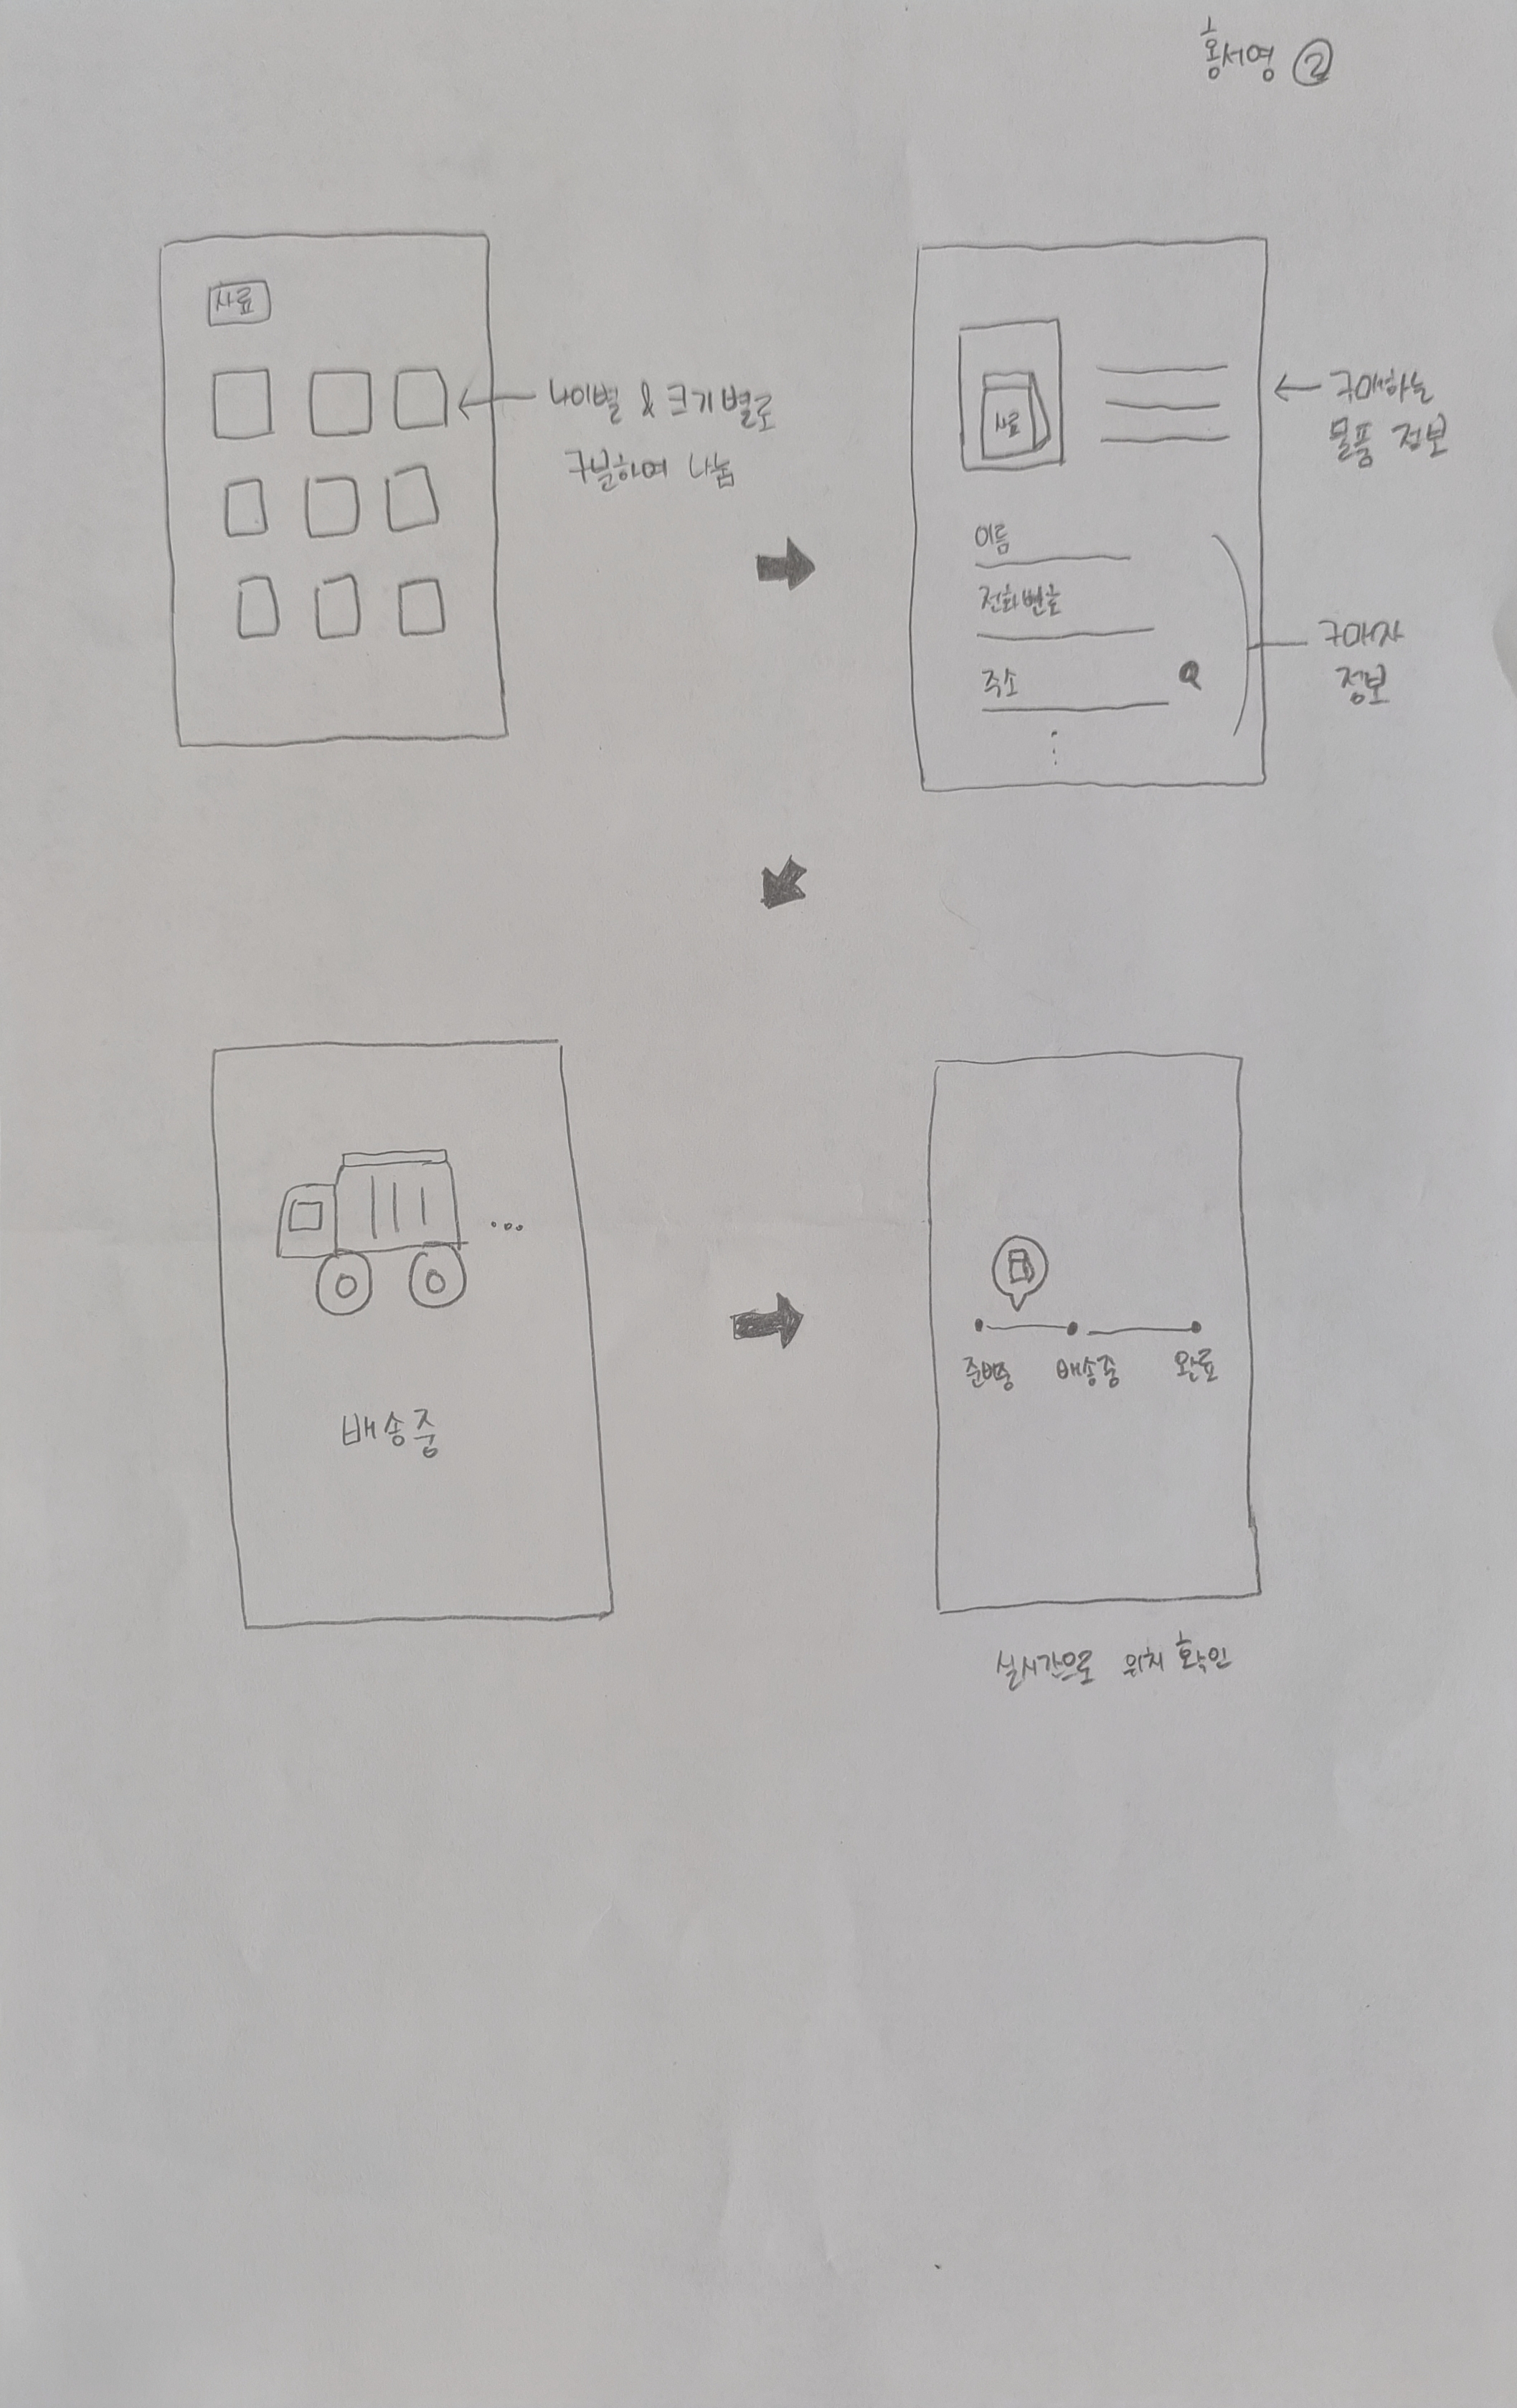 홍서영 ②
사료
나이별 & 크기별로
구분하여 나눔
사료
구매하는
물품 정보
이름
전화번호
주소
구매자
정보
배송중
준비중
배송중
완료
실시간으로 위치 확인